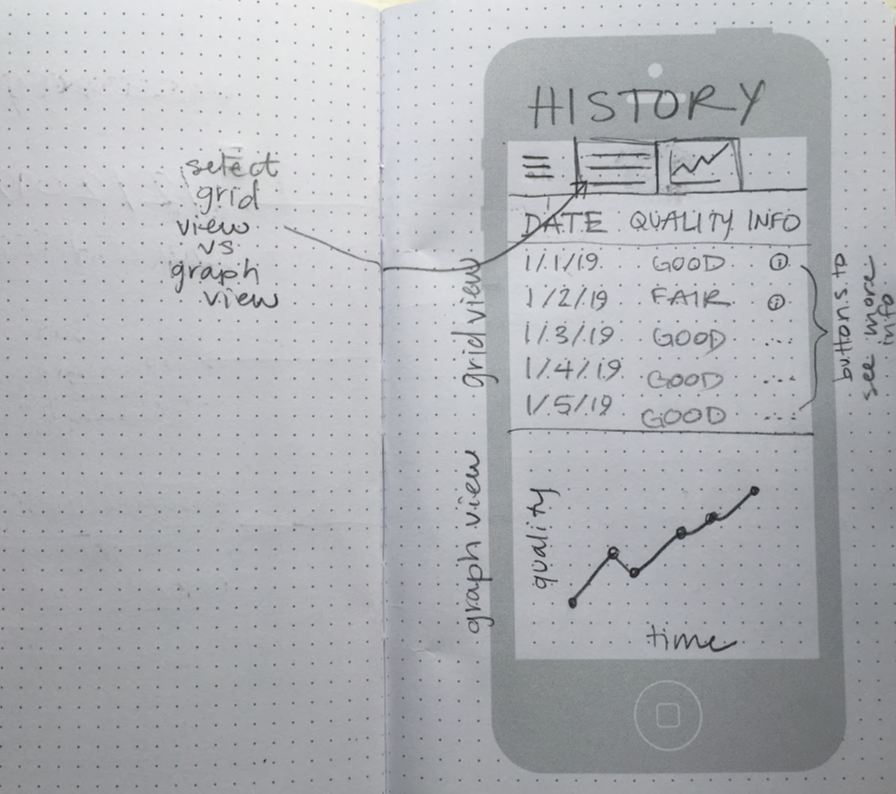 HISTORY
select
grid
view
vs
graph
view
DATE QUALITY INFO
1/1/19. GOOD i
1/2/19 FAIR i
1/3/19 GOOD ...
1/4/19. GOOD ...
1/5/19 GOOD ...
grid view
buttons to
see more
info
graph view
quality
time